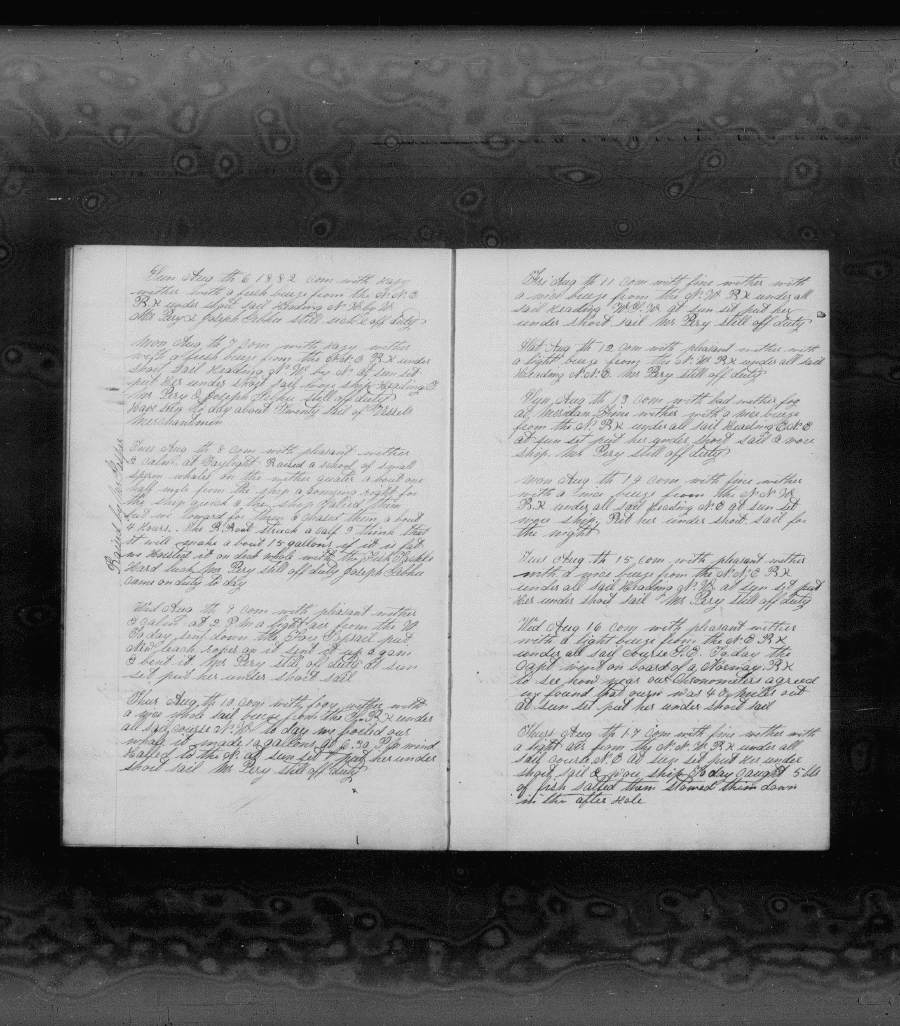 Sun Aug th 6 1882 Com with hazy
wither with a fresh breeze from the N.N.E
Bx under short sail Heading N.W. by W.
Mr Pery & Joseph still sick & off duty
Mon Aug th 7 Com with hazy wither
with a fresh breeze from the N.E Bx under
short sail Heading N.W. by N. at sun set
put her under short sail wore ship Heading E
Mr Pery & Joseph still off duty
Have seen to day about Twenty sail of Vessels
Merchantmen
Raised by Mr
Tues Aug th 8 Com with pleasant wither
& calm. at Daylight Raised a school of small
sperm whales on the wither quater about one
half mile from the ship a coming right for
the ship
and we lowered for them & chased them about
4 hours. The B. Boat struck a calf I think that
it will make about 15 gallons if it is fat
we Hoisted it on deck whole with the Fish Tackle
Hard luck Mr Pery still off duty Joseph
Came on duty to day
Wed Aug th 9 Com with pleasant wither
& calm. at 2 P.M a light air from the W
To day sent down the Fore Topsail put
new leach ropes on it sent it up again
& bent it. Mr Pery still off duty at sun
set put her under short sail
Thur Aug th 10 Com with foggy wither with
a nice whole sail breeze from the S. Bx under
all sail course N.W. to day we boiled our
whale it made 10 gallons at 6.30 P.M wind
Hailed to the N. at sun set put her under
short sail Mr Pery still off duty
Fri Aug th 11 Com with fine wither with
a nice breeze from the N.W. Bx under all
sail Heading W.S.W. at sun set put her
under short sail Mr Pery still off duty
Sat Aug th 12 Com with pleasant wither with
a light breeze from the N.W. Bx under all sail
Heading N.N.E. Mr Pery still off duty
Sun Aug th 13 Com with bad wither fog
at Meridian Fine wither with a nice breeze
from the N. Bx under all sail Heading E.N.E
at sun set put her under short sail & wore
ship. Mr Pery still off duty
Mon Aug th 14 Com with fine wither
with a breeze from the N.N.W.
Bx under all sail Heading N.E at sun set
wore ship, Put her under short sail for
the night
Tues Aug th 15 Com with pleasant wither
with a nice breeze from the N.N.E Bx
under all sail Heading N.W. at sun set put
Her under short sail Mr Pery still off duty
Wed Aug 16 Com with pleasant wither
with a light breeze from the N.E. Bx
under all sail Course S.E. To day the
Capt went on board of a Norway Bx
to see how near our Chronometers agreed
we found that ours was 40 miles out
at sun set put her under short sail
Thurs Aug th 17 Com with fine wither with
a light air from the N.N.W. Bx under all
sail course N.E at sun set put Her under
short sail & wore ship To day caught 5 bls
of fish salted them stowed them down
in the after Hole